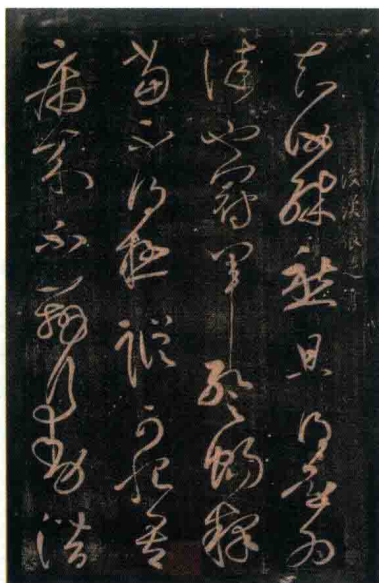 後漢張芝
知汝殊愁且得還為
佳也冠軍暫暢釋
當不得極蹤可恨吾
病來不辦行動潛